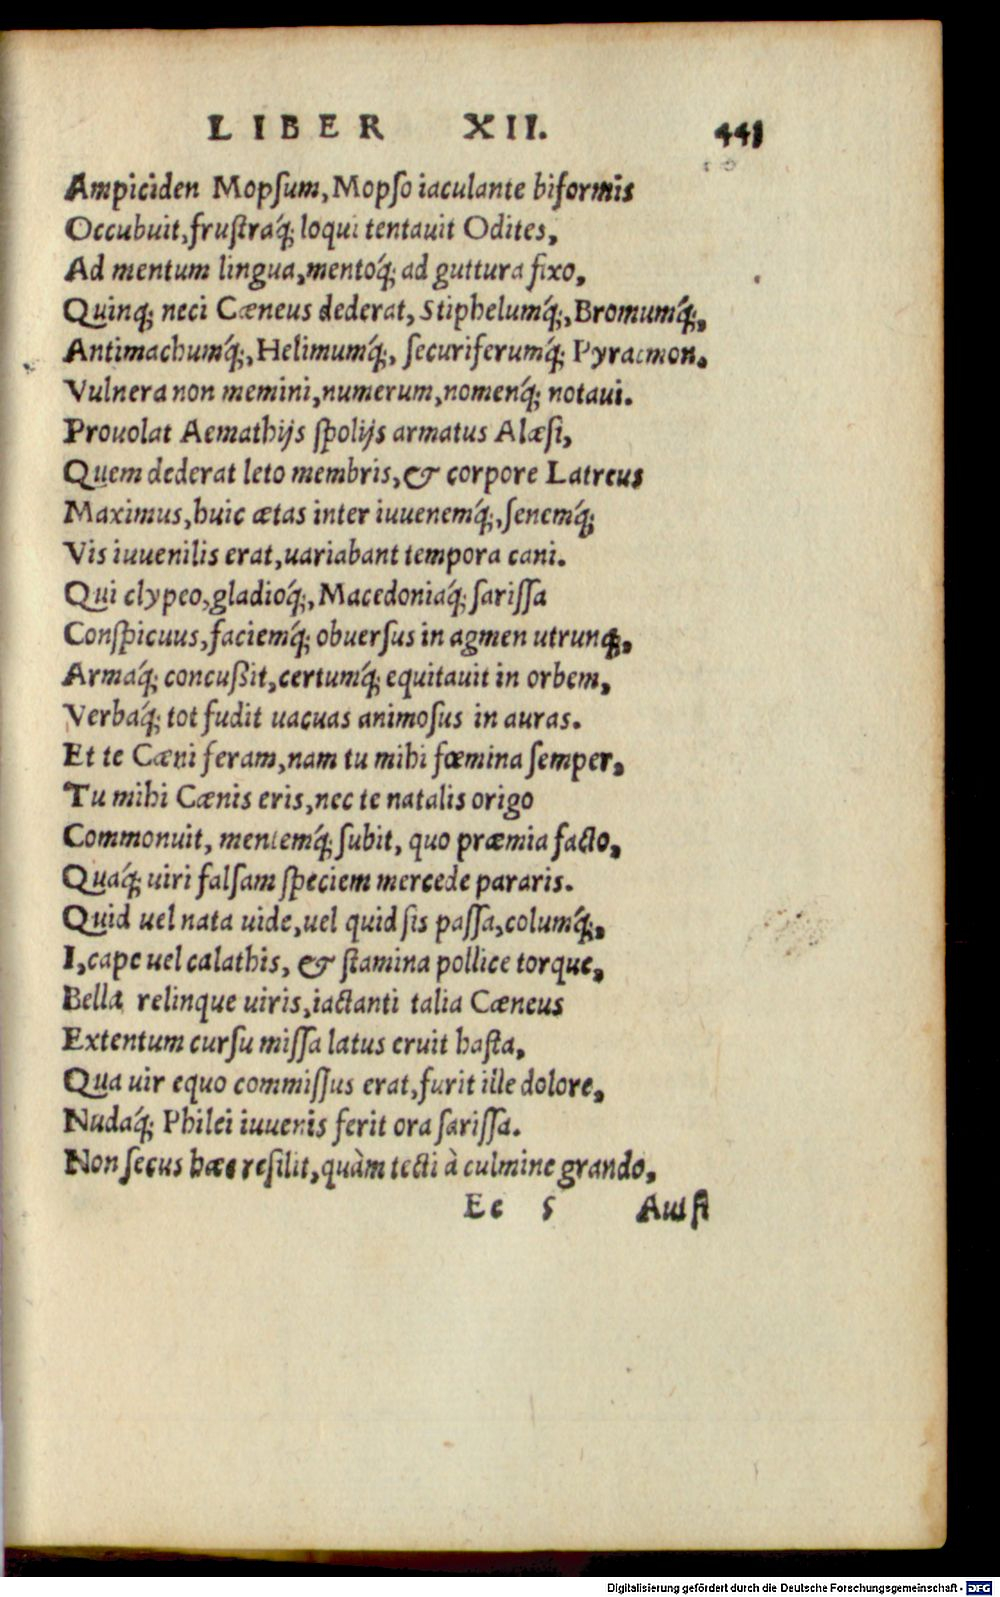 LIBER XII. 441
Ampiciden Mopſum, Mopſo iaculante biformis
Occubuit, fruſtraq́; loqui tentauit Odites,
Ad mentum lingua, mentoq́; ad guttura fixo,
Quinq; neci Cæneus dederat, Stiphelumq́;, Bromumq́;,
Antimachumq́;, Helimumq́;, ſecuriferumq́; Pyracmon.
Vulnera non memini, numerum, nomenq́; notaui.
Prouolat Aemathijs ſpolijs armatus Alæſi,
Quem dederat leto membris, & corpore Latreus
Maximus, huic ætas inter iuuenemq́;, ſenemq́;
Vis iuuenilis erat, uariabant tempora cani.
Qui clypeo, gladioq́;, Macedoniaq́; ſariſſa
Conſpicuus, faciemq́; obuerſus in agmen utrunq;,
Armaq́; concußit, certumq́; equitauit in orbem,
Verbaq́; tot fudit uacuas animoſus in auras.
Et te Cæni feram, nam tu mihi fœmina ſemper,
Tu mihi Cænis eris, nec te natalis origo
Commonuit, mentemq́; ſubit, quo præmia facto,
Quaq́; uiri falſam ſpeciem mercede pararis.
Quid uel nata uide, uel quid ſis paſſa, columq́;,
I, cape uel calathis, & ſtamina pollice torque,
Bella relinque uiris, iactanti talia Cæneus
Extentum curſu miſſa latus eruit haſta,
Qua uir equo commiſſus erat, furit ille dolore,
Nudaq́; Philei iuuenis ferit ora ſariſſa.
Non ſecus hæc reſilit, quàm tecti à culmine grando,
Ee 5 Aut ſi
Digitalisierung gefördert durch die Deutsche Forschungsgemeinschaft - DFG